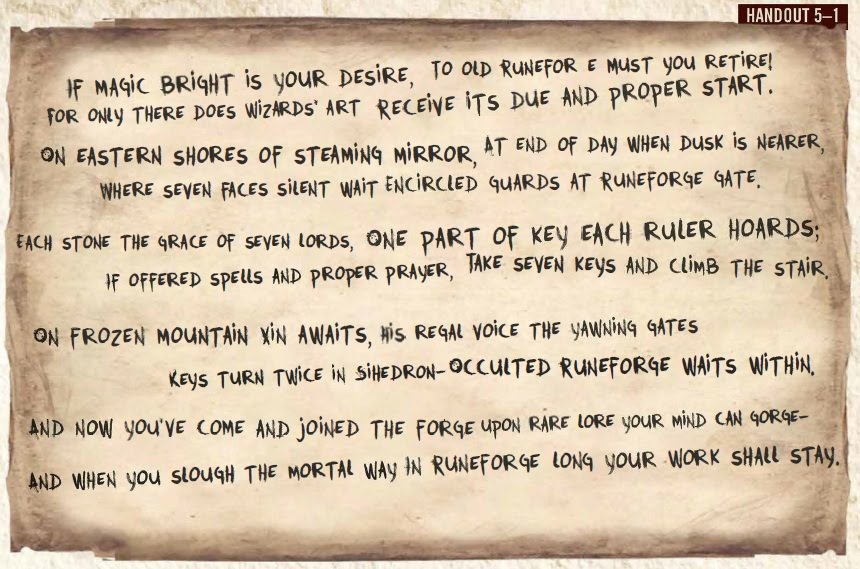 HANDOUT 5–1
IF MAGIC BRIGHT IS YOUR DESIRE, TO OLD RUNEFOR E MUST YOU RETIRE!
FOR ONLY THERE DOES WIZARDS' ART RECEIVE ITS DUE AND PROPER START.
ON EASTERN SHORES OF STEAMING MIRROR, AT END OF DAY WHEN DUSK IS NEARER,
WHERE SEVEN FACES SILENT WAIT ENCIRCLED GUARDS AT RUNEFORGE GATE.
EACH STONE THE GRACE OF SEVEN LORDS, ONE PART OF KEY EACH RULER HOARDS;
IF OFFERED SPELLS AND PROPER PRAYER, TAKE SEVEN KEYS AND CLIMB THE STAIR.
ON FROZEN MOUNTAIN XIN AWAITS, HIS REGAL VOICE THE YAWNING GATES
KEYS TURN TWICE IN SIHEDRON–OCCULTED RUNEFORGE WAITS WITHIN.
AND NOW YOU'VE COME AND JOINED THE FORGE UPON RARE LORE YOUR MIND CAN GORGE–
AND WHEN YOU SLOUGH THE MORTAL WAY IN RUNEFORGE LONG YOUR WORK SHALL STAY.